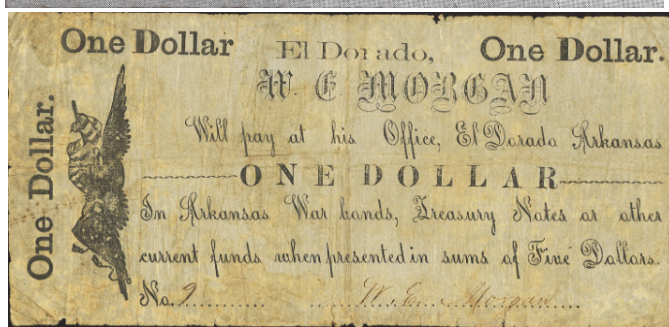 One Dollar El Dorado, One Dollar.
W. E. MORGAN
Will pay at his Office, El Dorado Arkansas
ONE DOLLAR
In Arkansas War bonds, Treasury Notes or other
current funds when presented in sums of Five Dollars.
No. 9 W. E. Morgan
One Dollar.